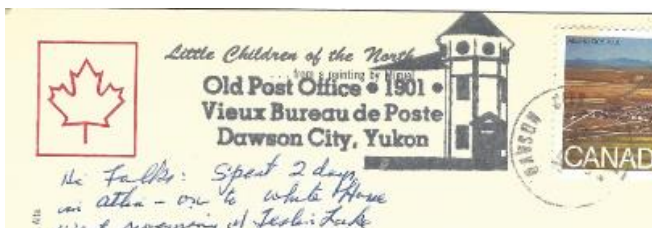 Little Children of the North
from a painting by
Old Post Office • 1901 •
Vieux Bureau de Poste
Dawson City, Yukon
CANAD
DAWSON
Hi Folks: Spent 2 days
in Atlin - on to White Horse
Teslin Lake
Alta